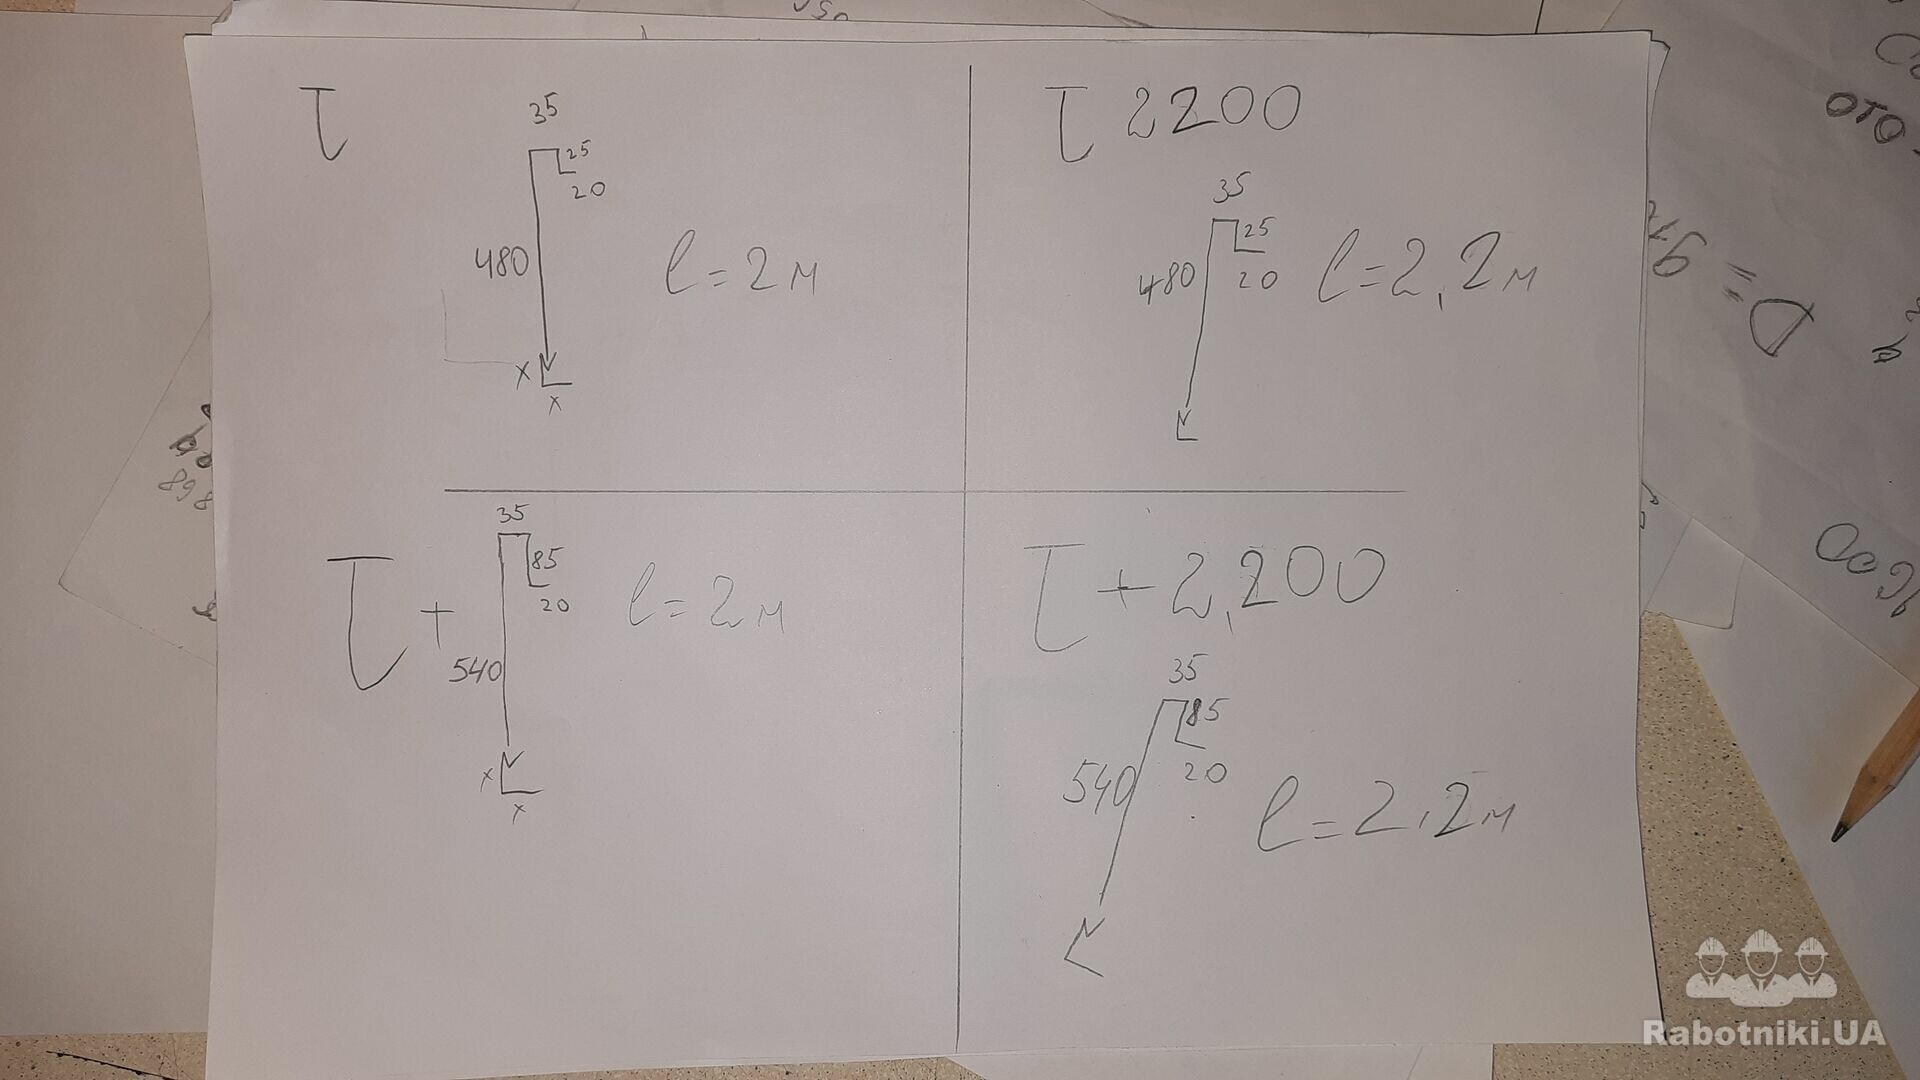 τ
35
25
20
480
l=2м
x
x
τ 2200
35
25
20
480
l=2,2м
τ+
35
85
20
540
l=2м
x
x
τ+2,200
35
85
20
540
l=2,2м
ОТО
D=91
1600
868
Rabotniki.UA